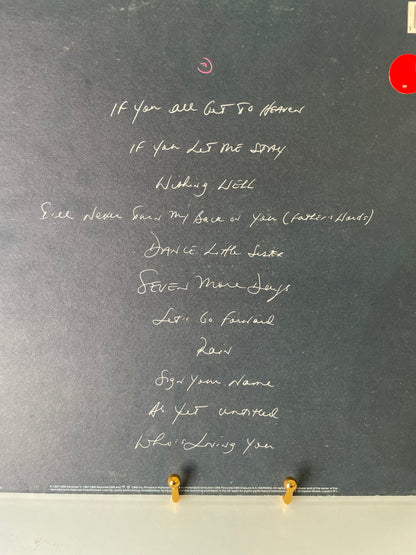 If You All Get To Heaven
If You Let Me Stay
Wishing Well
I'll Never Turn My Back on You (Father's Words)
Dance Little Sister
Seven More Days
Let's Go Forward
Rain
Sign Your Name
As Yet Untitled
Who's Loving You